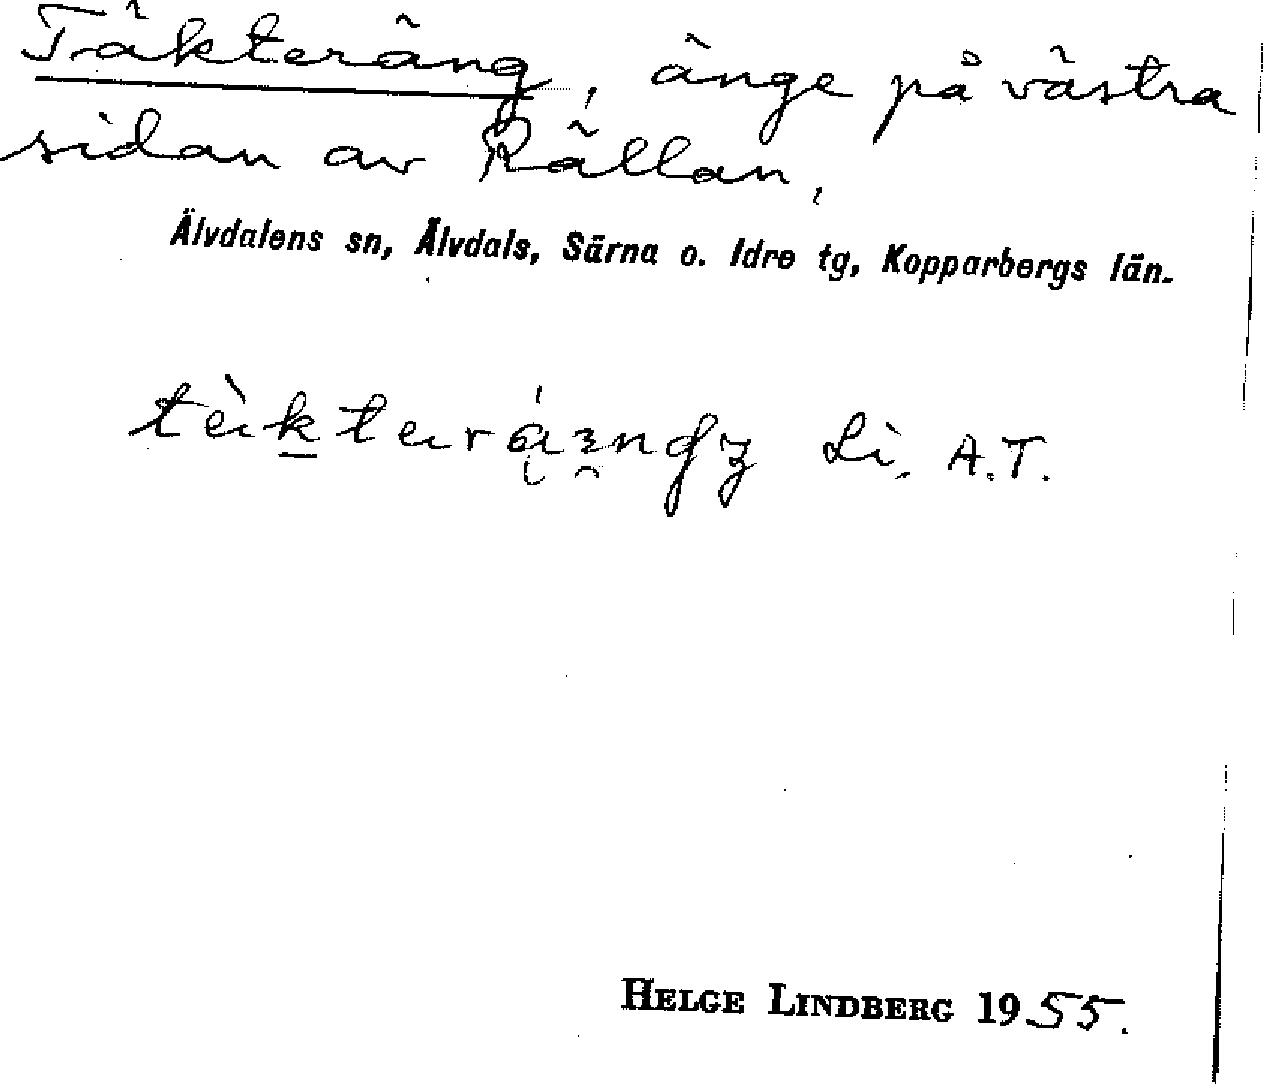 Täkteräng, änge på västra
sidan av Rällan,
Älvdalens sn, Älvdals, Särna o. Idre tg, Kopparbergs län.
Li. A.T.
HELGE LINDBERG 1955.